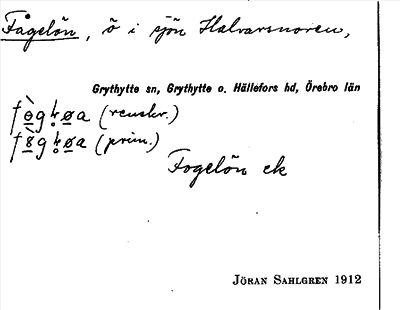 Fågelön, ö i sjön Halvarsnoren,
Grythytte sn, Grythytte o. Hällefors hd, Örebro län
(renskr.)
(prim.)
Fogelön ek
JÖRAN SAHLGREN 1912